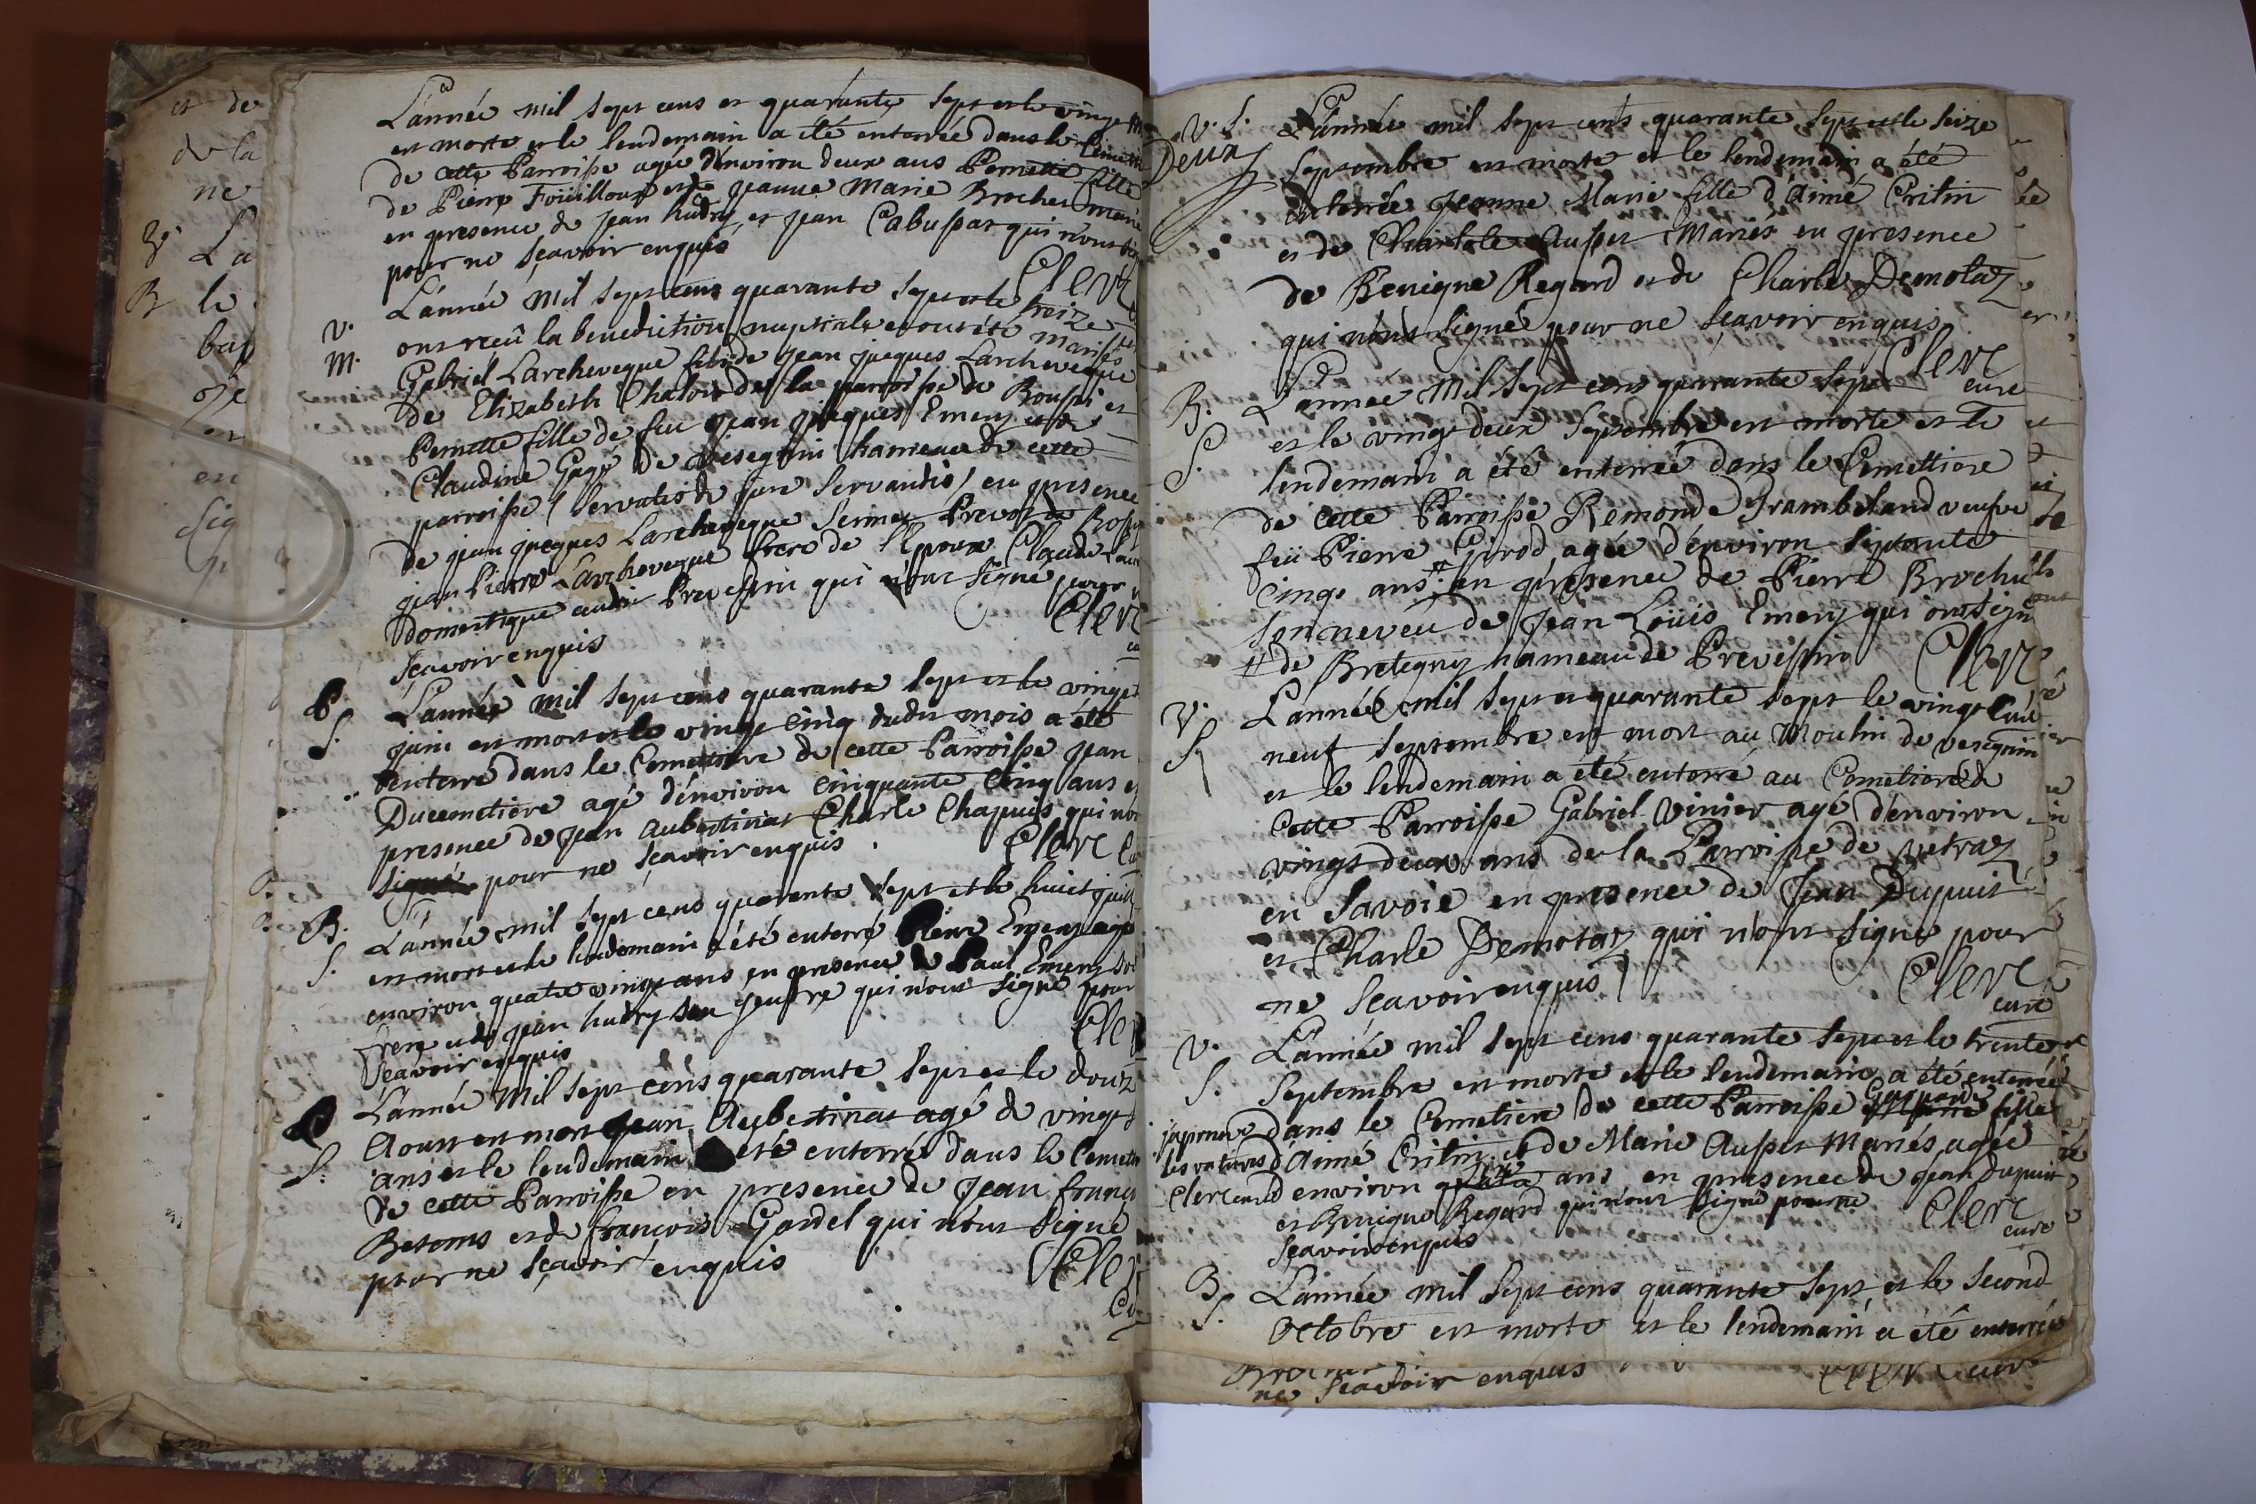 et de
de la
ne
La
B le
bap
en
sig
L'année mil sept cens et quarante sept et le vingt
est morte et le lendemain a été enterrée dans le Cimet
de cette Parroisse agée d'environ deux ans Pernette fille
de Pierre Foüilloux et de jeanne Marie Brochu Marié
en presence de jean hudry et jean Cabussat qui n'ont
pour ne sçavoir enquis
Clerc
v.
M.
L'année Mil sept cens quarante sept et le treize
ont receû la benediction nuptiale et ont été mariés
Gabriel Larcheveque fils de jean jacques Larcheveque
de Elizabeth Chalon de la parroisse de et
Pernette fille de feu jean jacques Emery et de
Claudine Gagy de vesegnin hameau de cette
parroisse / servatis de jure servandis / en presence
de jean jacques Larcheveque
jean Pierre Larcheveque frere de l'Epoux Claude
domestique audit Prevessin qui n'ont signé pour
sçavoir enquis
Clerc
P.
S.
L'année mil sept cens quarante sept et le vingt
juin est mort et le vingt cinq dudit mois a été
enterré dans le Cemetiere de cette Parroisse jean
Ducemetiere agé d'environ cinquante cinq ans e
presence de jean Aubertinat Charle Chapuis qui no
signé pour ne sçavoir enquis
Clerc Cu
B.
S.
L'année mil sept cens quarante sept et le huict juil
est mort et le lendemain a été enterré Pierre Emery agé
environ quatre vingt ans en presence de Paul Emery son
frere et de jean hudry son gendre qui n'ont signé pour
sçavoir enquis
Cler
S.
L'année Mil sept cens quarante sept et le douz
Aoust est mort jean Aubertinat agé de vingt
ans et le lendemain a eté enterré dans le Cemetie
de cette Parroisse en presence de Jean franço
Betems et de françois Gardel qui n'ont signé
pour ne sçavoir enquis
Cler
Cu
v. S.
Deux
L'année mil sept cens quarante sept et le seize
septembre est morte et le lendemain a été
enterrée jeanne Marie fille d'Aimé Critin
et de Charlole Ausset Mariés en presence
de Benigne Regard et de Charle Demotaz
qui n'ont signé pour ne sçavoir enquis
Clerc
curé
B.
S.
L'année Mil sept cens quarante sept
et le vingt deux septembre est morte et le
lendemain a été enterrée dans le Cemettiere
de cette Parroisse Remonde Frambeland veufve
feü Pierre Girod agée d'environ septante
cinq ans # en presence de Pierre Brochu
son neveu de Jean Loüis Emery qui ont sign
# de Bretegny hameau de Prevessin
Clerc
Curé
v.
S.
L'année mil sept et quarante sept le vingt
neuf septembre est mort au Moulin de vesegnin
et le lendemain a été enterré au Cemetiere de
Cette Parroisse Gabriel Vinier agé d'environ
vingt deux ans de la Parroisse de vetraz
en Savoie en presence de Jean Dupuit
et Charle Demotaz qui n'ont signé pour
ne sçavoir enquis
Clerc
curé
v.
S.
L'année mil sept cens quarante sept et le trente
Septembre est morte et le lendemain a été enterrée
dans le Cemetiere de cette Parroisse Gasparde fille
d'Aimé Critin et de Marie Ausset Mariés agée
d'environ ans en presence de jean Dupuit
et Benigne Regard qui n'ont signé pour ne
sçavoir enquis
Clerc
curé
japrouve
les ratures
Clerc curé
B.
S.
L'année mil sept cens quarante sept et le second
Octobre est morte et le lendemain a été enterrée
ne sçavoir enquis
Clerc curé